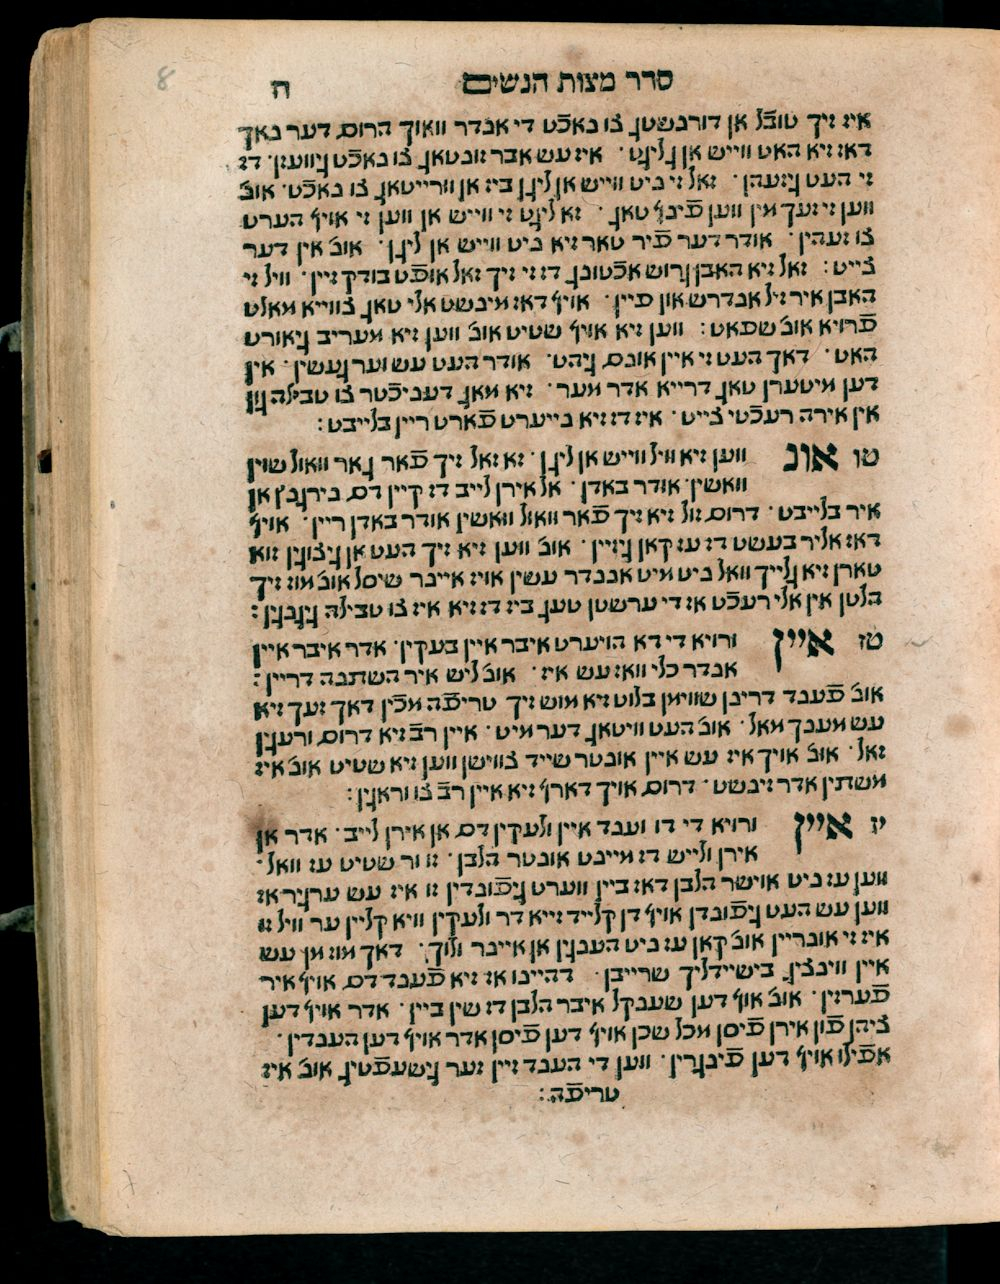 8
סדר מצות הנשים ה
איז זיך טובֿל אן דורנשטג צו נאכֿט די אנדר וואוך הרום דער נאך
דאז זיא האט ווייש אן גליגט · איז עש אבר זונטאג צו נאכֿט גיוועזן · דז
זי העט גיזעהן · זאל זי ניט ווייש אן ליגן ביז אן וורייטאג צו נאכֿט · אונ׳
ווען זי זעך מין ווען פֿינף טאג · זא ליגט זי ווייש אן ווען זי אויף הערט
צו זעהין · אודר דער פֿיר טאר זיא ניט ווייש אן ליגן · אונ׳ אין דער
צייט : זאל זיא האבן גרוש אכֿטונג דז זי זיך זאל אופֿט בודק זיין · וויל זי
האבן איר זיל אנדרש און פיין · אויף דאז מינשט אלי טאג צווייא מאלט
פֿרויא אונ׳ שפאט : ווען זיא אויף שטיט אונ׳ ווען זיא מעריב גיאורט
האט · דאך העט זי איין אונס גיהט · אודר העט עש וער געשין · אין
דען מיטערן טאג דרייא אדר מער · זיא מאג דעניכֿטר צו טבילה גין
אין אירה רעכֿטי צייט · איז דז זיא נייערט פֿארט ריין בלייבט :
טו אונ׳ ווען זיא וויל ווייש אן ליגן · זא זאל זיך פֿאר גאר וואול שוין
וואשין · אודר באדן · אל אירן לייב דז קיין דם נירגנץ אן
איר בלייבט · דרום זול זיא זיך פֿאר וואול וואשין אודר באדן ריין · אויף
דאז אליר בעשט דז עז קאן גיזיין · אונ׳ ווען זיא זיך העט אן גיצוגין זוא
טארן זיא גלייך וואל ניט מיט אננדר עשין אויז איינר שיסל אונ׳ מוז זיך
הלטן אין אלי רעכֿט אז די ערשטן טעג ביז דז זיא איז צו טבילה גיגנגין :
טז איין ורויא די דא הויערט איבר איין בעקין · אדר איבר איין
אנדר כלי וואז עש איז · אונ׳ ליש איר השתנה דריין :
אונ׳ פֿענד דרינן שווימן בלוט זיא מוש זיך טריפֿה מכֿין דאך זעך זיא
עש מענך מאל · אונ׳ העט וויטאג דער מיט · איין רבֿ זיא דרום ורעגין
זאל · אונ׳ אויך איז עש איין אונטר שייד צווישן ווען זיא שטיט אונ׳ איז
משתין אדר זיגשט · דרום אויך דארף זיא איין רבֿ צו וראגין :
יז איין ורויא די דו ועגד איין ולעקין דם אן אירן לייב · אדר אן
אירן ולייש דז מיינט אונטר הלבן · זו ור שטיט עז וואל ·
ווען עז ניט אוישר הלבן דאז ביין ווערט גיפֿונדין זו איז עש ערגיר אז
ווען עש העט גיפֿונדן אויף דן קלייד זייא דר ולעקין וויא קליין ער וויל זו
איז זי אונריין אונ׳ קאן עז ניט העבגין אן איינר ולוך · דאך מוז מן עש
איין ווינציג בישיידליך שרייבן · דהיינו אז זיא פֿענד דם אויף איר
פֿערזין · אונ׳ אויף דען שענקל איבר הלבן דז שין ביין · אדר אויף דען
ציהן פֿון אירן פֿיסן מכל שכן אויף דען פֿיסן אדר אויף דען הענדין ·
אפֿילו אויף דען פֿינגרין · ווען די הענד זיין זער גישעפֿטיג אונ׳ איז
טריפֿה :